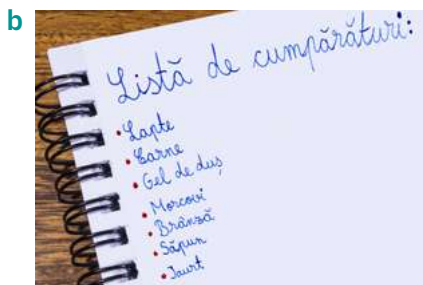 b
Listă de cumpărături:
• Lapte
• Carne
• Gel de duș
• Morcovi
• Brânză
• Săpun
• Iaurt